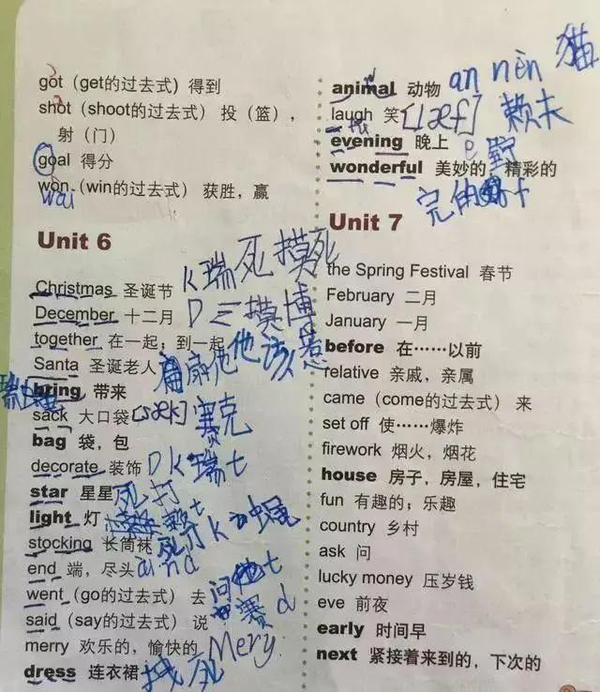 got (get的过去式) 得到
shot (shoot的过去式) 投 (篮),
射 (门)
goal 得分
won (win的过去式) 获胜，赢
wai
Unit 6
Christmas 圣诞节 K瑞死摸死
December 十二月 D三摸博
together 在一起；到一起
Santa 圣诞老人
bring 带来
sack 大口袋 [sæk] 赛克
bag 袋，包
decorate 装饰 DK瑞t
star 星星 死打
light 灯 赖t
stocking 长筒袜
end 端，尽头 aind
went (go的过去式) 去
said (say的过去式) 说 赛d
merry 欢乐的，愉快的 Mery
dress 连衣裙
animal 动物 an nèn 猫
laugh 笑 [læf] 赖夫
evening 晚上
wonderful 美妙的，精彩的
Unit 7
the Spring Festival 春节
February 二月
January 一月
before 在……以前
relative 亲戚，亲属
came (come的过去式) 来
set off 使……爆炸
firework 烟火，烟花
house 房子，房屋，住宅
fun 有趣的；乐趣
country 乡村
ask 问
lucky money 压岁钱
eve 前夜
early 时间早
next 紧接着来到的，下次的